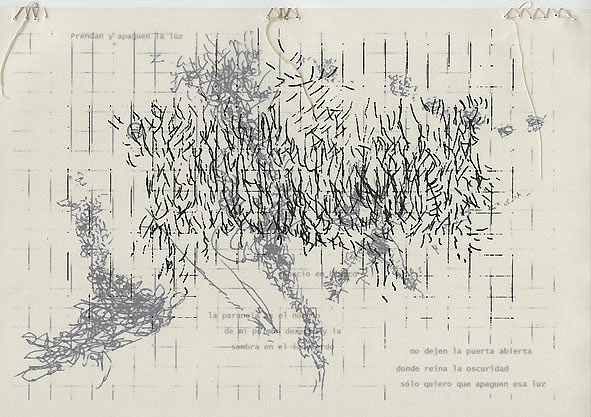 Prendan y apaguen la luz
en
la paranoia es el
de mi la
sombra en el
no dejen la puerta abierta
donde reina la oscuridad
sólo quiero que apaguen esa luz